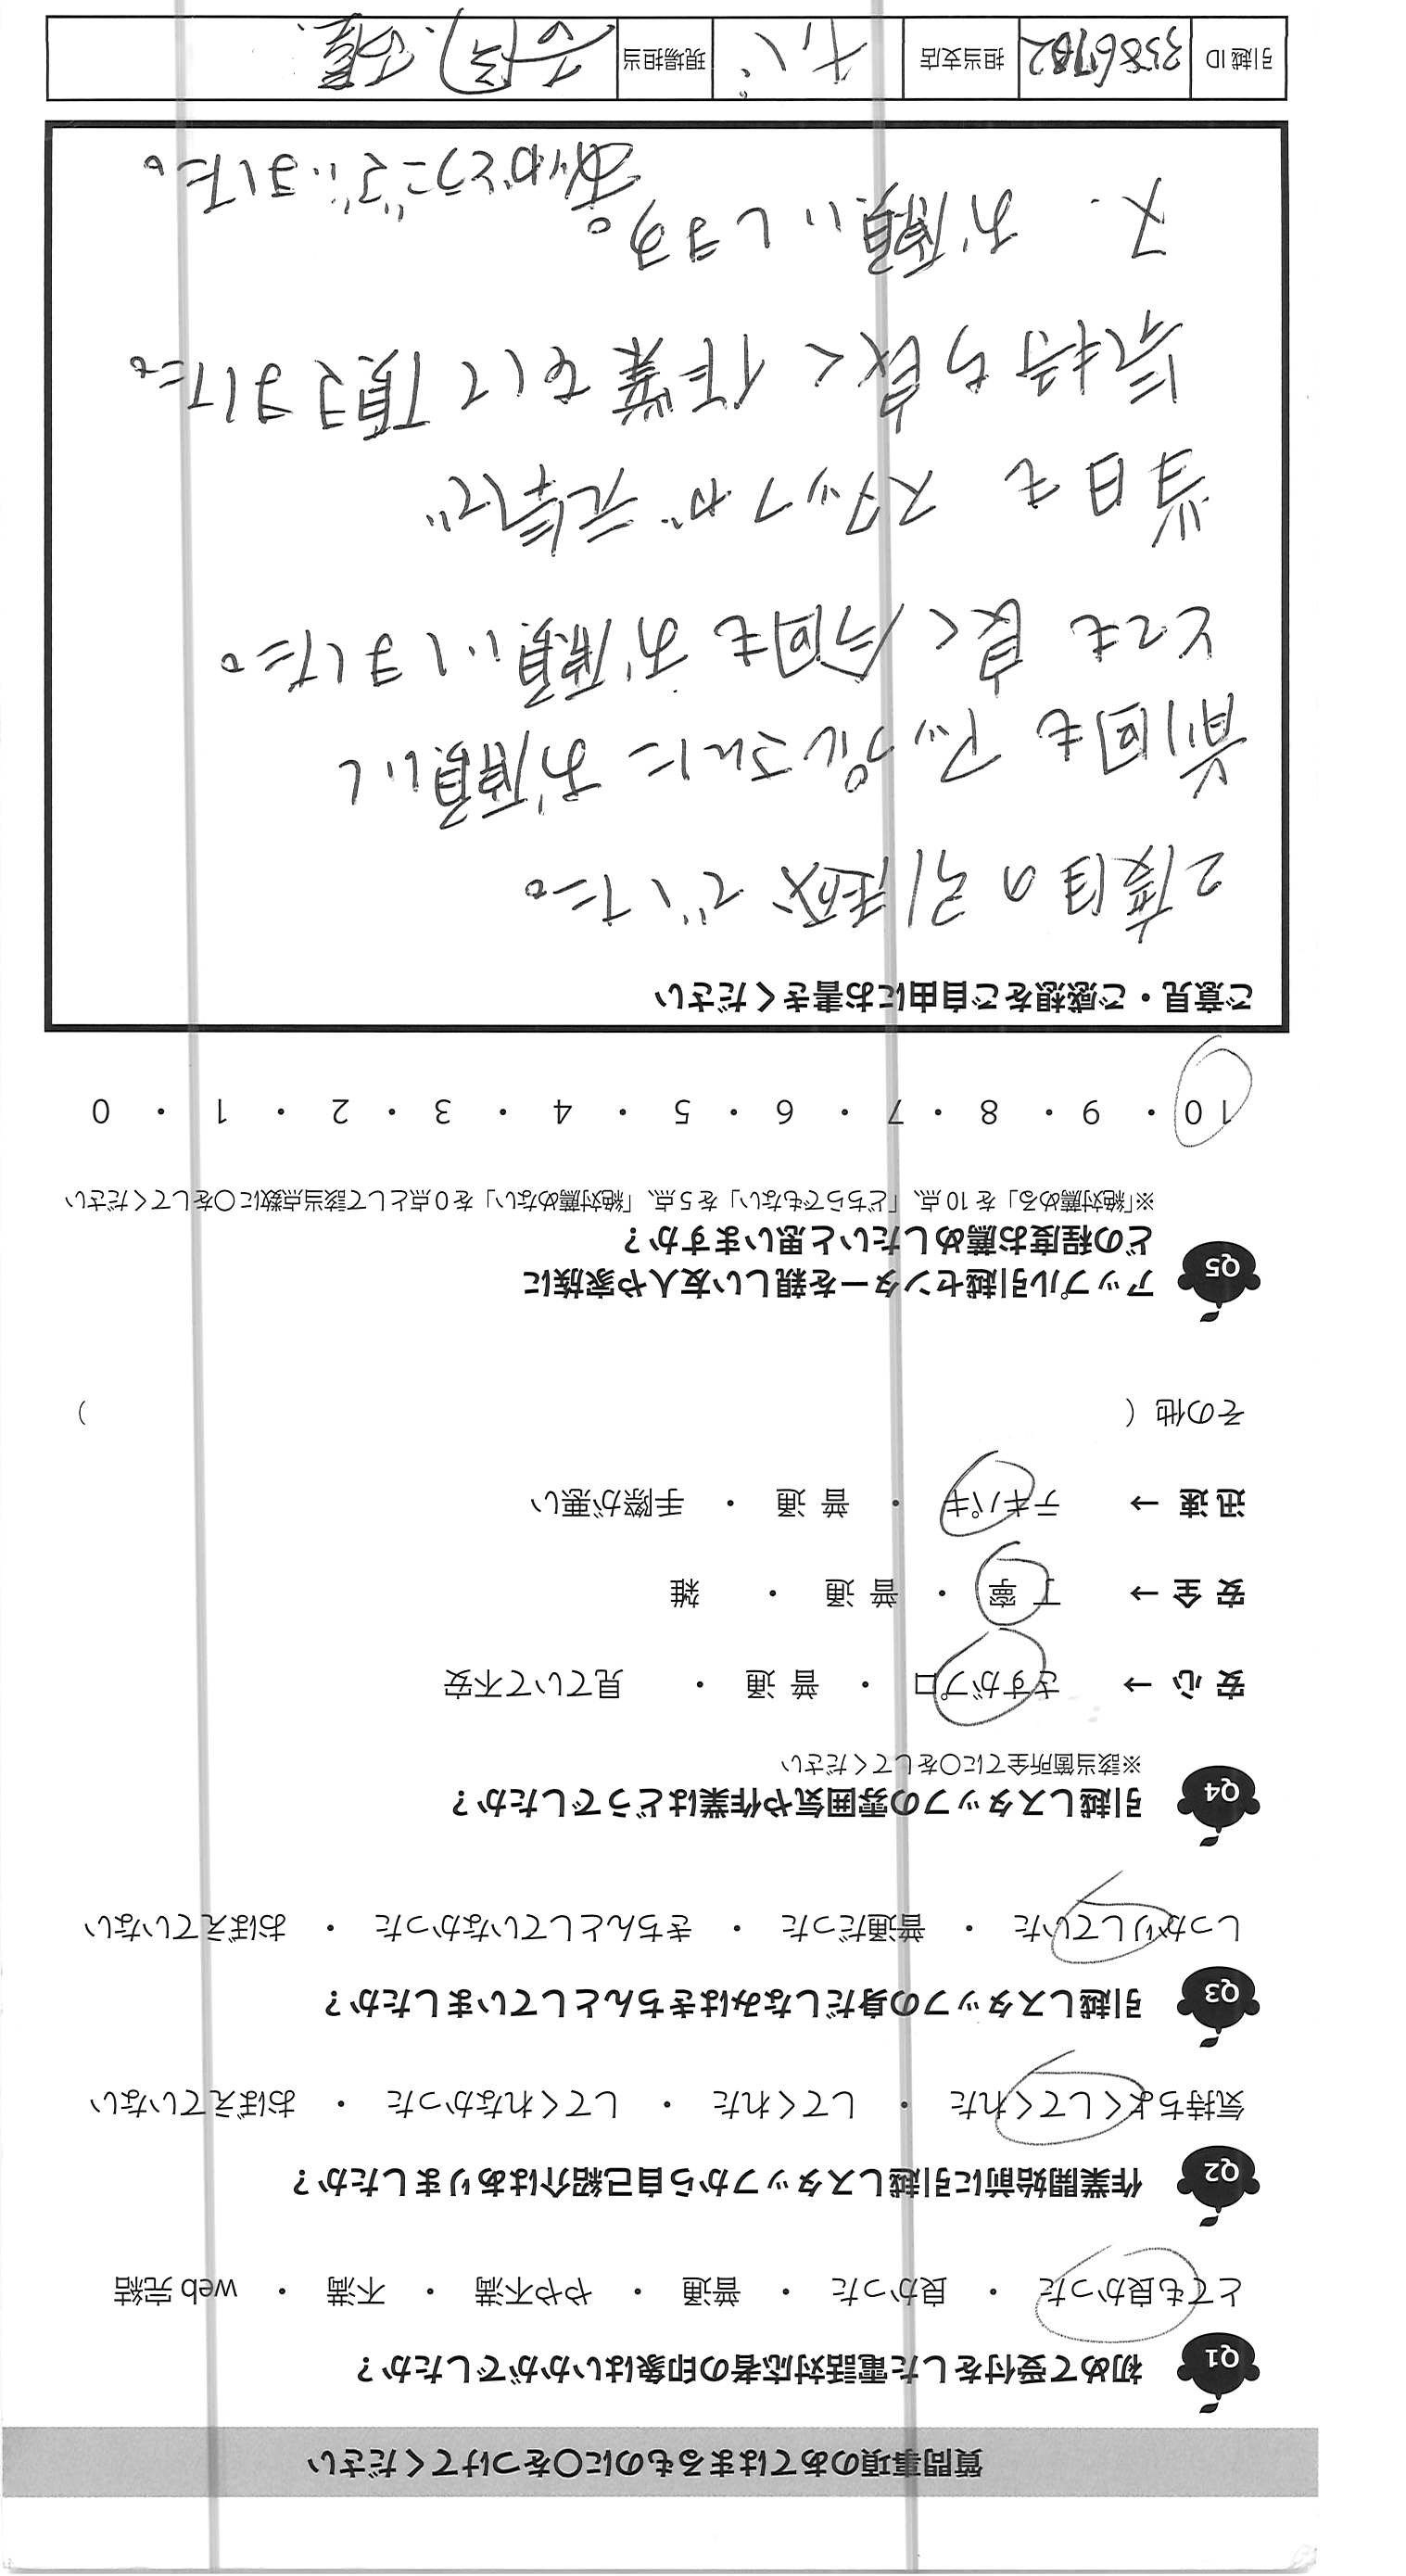 質問事項のあてはまるものに○をつけてください
Q1 初めて受付をした電話対応者の印象はいかがでしたか？
とても良かった ・ 良かった ・ 普通 ・ やや不満 ・ 不満 ・ web完結
Q2 作業開始前に引越しスタッフから自己紹介はありましたか？
気持ちよくしてくれた ・ してくれた ・ してくれなかった ・ おぼえていない
Q3 引越しスタッフの身だしなみはきちんとしていましたか？
しっかりしていた ・ 普通だった ・ きちんとしていなかった ・ おぼえていない
Q4 引越しスタッフの雰囲気や作業はどうでしたか？
※該当箇所全てに○をしてください
安心 → さすがプロ ・ 普通 ・ 見ていて不安
安全 → 丁寧 ・ 普通 ・ 雑
迅速 → テキパキ ・ 普通 ・ 手際が悪い
その他（ ）
Q5 アップル引越センターを親しい友人や家族に
どの程度お薦めしたいと思いますか？
※「絶対薦める」を10点、「どちらでもない」を5点、「絶対薦めない」を0点として該当点数に○をしてください
10 ・ 9 ・ 8 ・ 7 ・ 6 ・ 5 ・ 4 ・ 3 ・ 2 ・ 1 ・ 0
ご意見・ご感想をご自由にお書きください
2度目の引越でした。
前回も アップルさんに お願いし
とても 良く 今回も お願いしました。
当日も スタッフが 元気で
気持ち良く 作業をして頂きました。
又、お願いします。
ありがとうございました。
引越ID 担当支店 現場担当